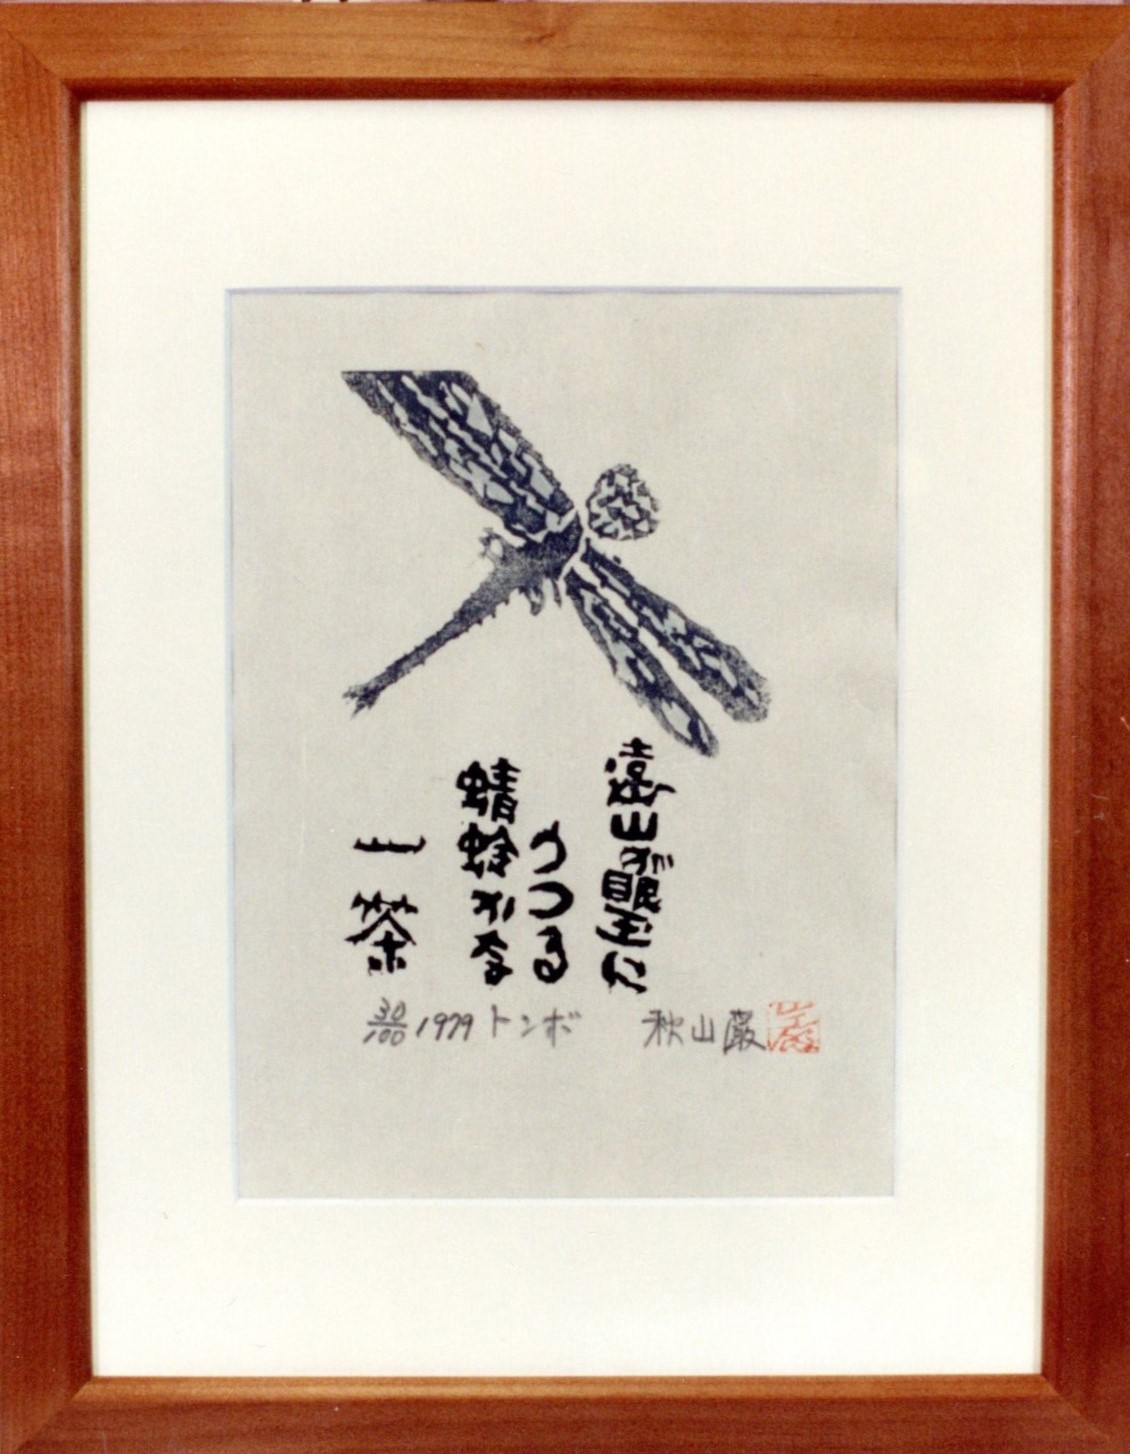 遠山が眼玉に
うつる
蜻蛉かな
一茶
30/100 1979 トンボ 秋山巌